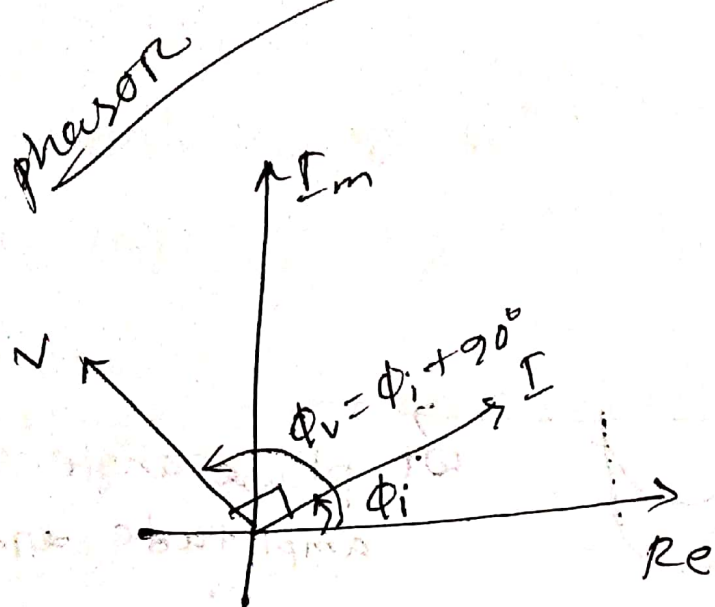 phasor
Im
V
ϕv = ϕi + 90°
I
ϕi
Re